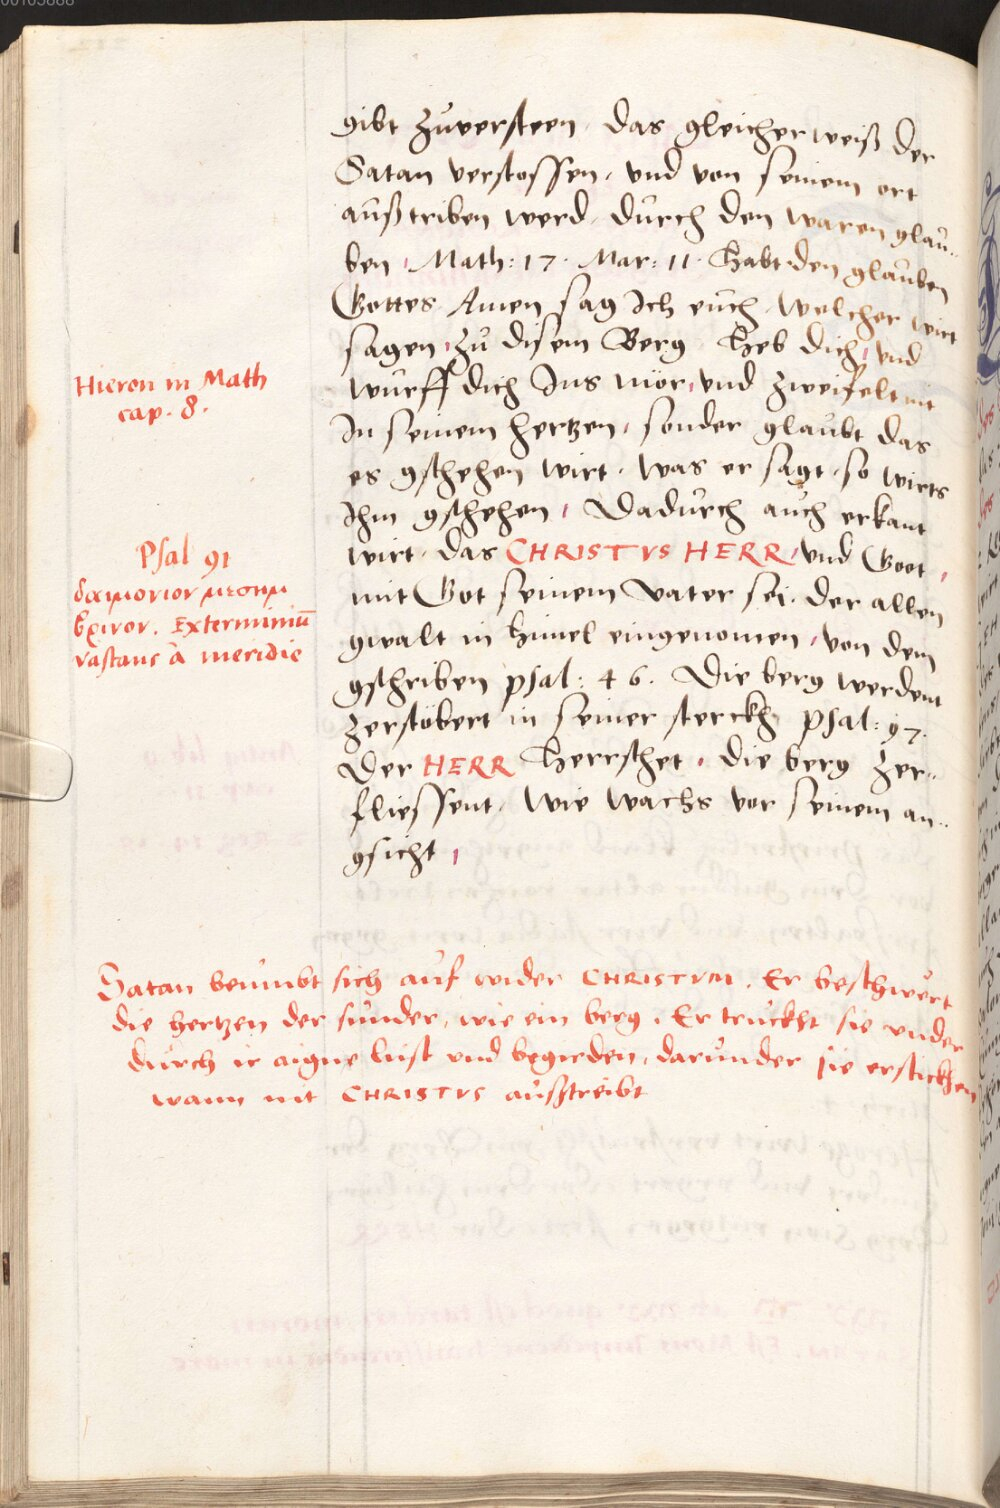 gibt zuversteen, das gleicher weiß der
Satan verstossen, und von seinem ort
außtriben werd, durch den waren glau„
ben, Math: 17. Mar: 11. Habt den glauben
Gottes. Amen sag Ich euch, welcher wirt
sagen, zu disem Berg, Heb dich, und
würff dich Ins mör, und zweifelt nit
In seinem hertzen, sonder glaubt das
es gschehen wirt, was er sagt, so wirts
Ihm gschehen, Dadurch auch erkant
wirt, das CHRISTVS HERR, und Gott,
mit Got seinem vater sei, der allen
gwalt in himel eingenomen, von dem
gschriben psal: 46. Die berg werdent
zerstöbert in seiner sterckh psal: 97.
Der HERR Herrschet, die berg zer„
fliessent, wie wachs vor seinem an„
gsicht,
Hieron in Math
cap. 8.
Psal 91
δαιμονιον μεσημ
βρινον. Exterminiū
vastans à meridie
Satan beümbt sich auf wider CHRISTVM. Er beschwert
die hertzen der sünder, wie ein berg. Er truckht sie under
durch ir aigne lust und begirden, darunder sie ersticken
wann nit CHRISTVS außtreibt